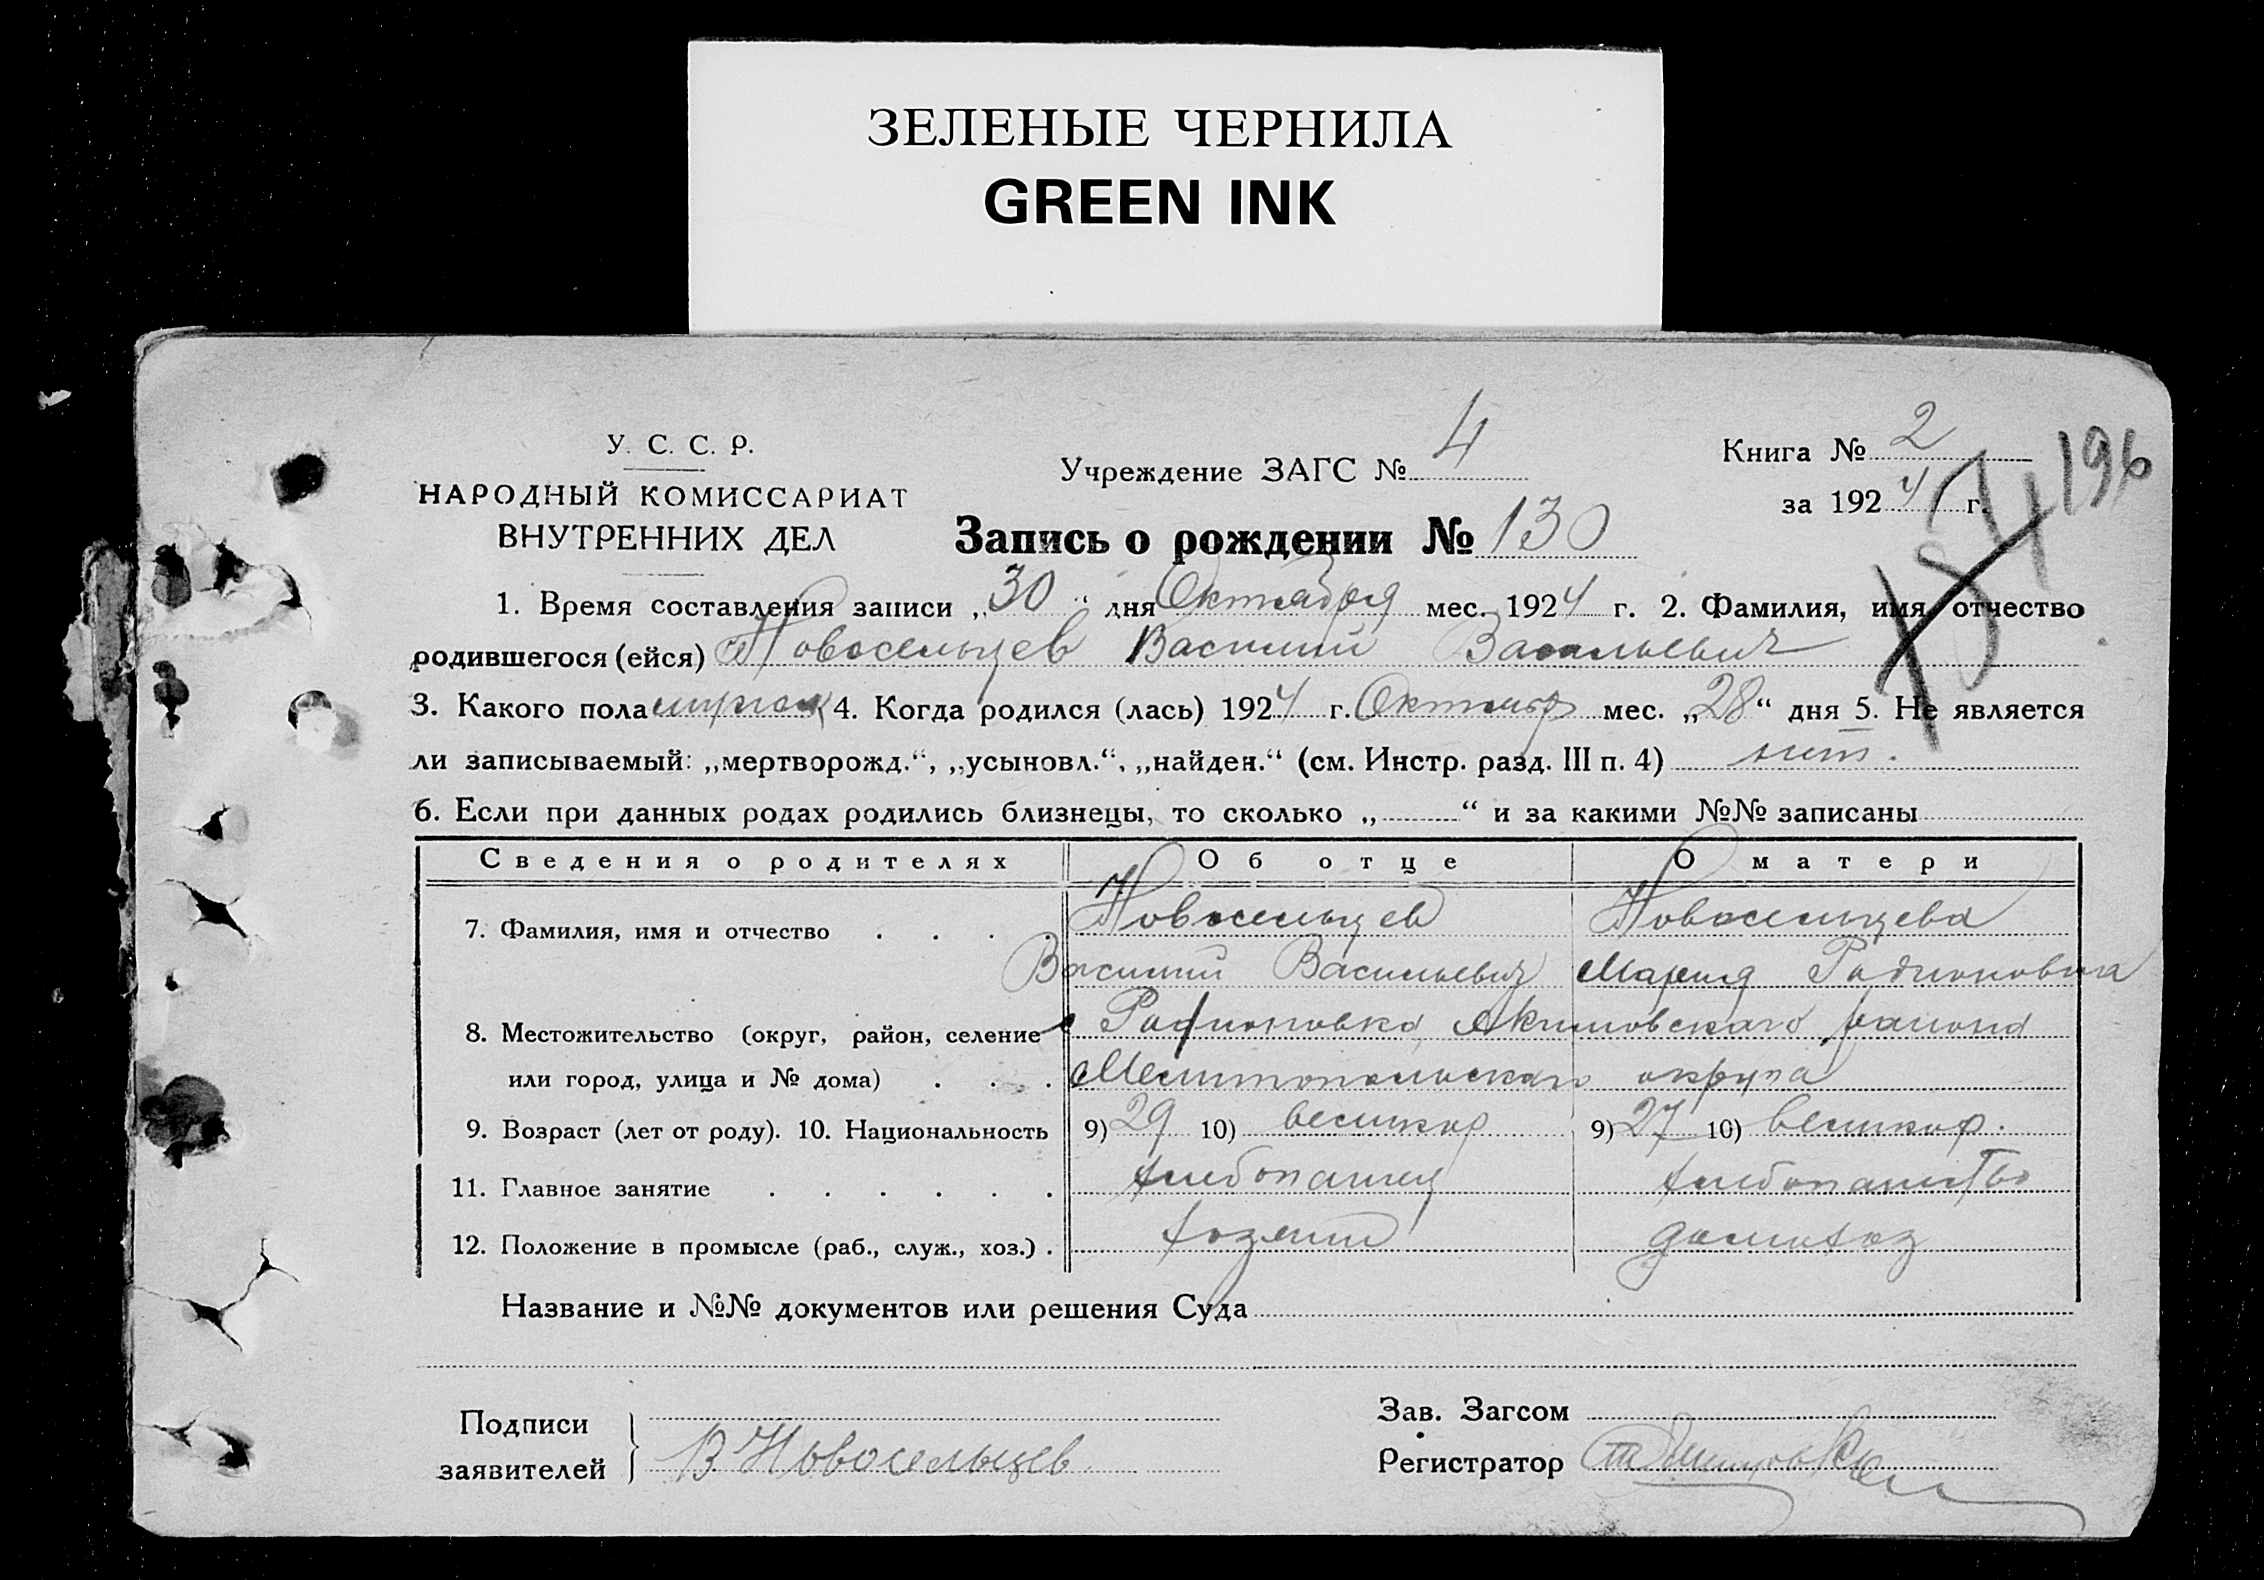 ЗЕЛЕНЫЕ ЧЕРНИЛА
GREEN INK
У. С. С. Р.
НАРОДНЫЙ КОМИССАРИАТ
ВНУТРЕННИХ ДЕЛ
Учреждение ЗАГС № 4
Книга № 2
за 1924 г.
184 196
Запись о рождении № 130
1. Время составления записи „30“ дня Октября мес. 1924 г. 2. Фамилия, имя, отчество
родившегося (ейся) Новосельцев Василий Васильевич
3. Какого пола мужск 4. Когда родился (лась) 1924 г. Октябр мес. „28“ дня 5. Не является
ли записываемый: „мертворожд.“, „усыновл.“, „найден.“ (см. Инстр. разд. III п. 4) нет.
6. Если при данных родах родились близнецы, то сколько „ “ и за какими №№ записаны
Сведения о родителях Об отце О матери
7. Фамилия, имя и отчество . . . . Новосельцев Новосельцева
Василий Васильевич Мария Родионовна
8. Местожительство (округ, район, селение с Родионовка Акимовского района
или город, улица и № дома) . . . Мелитопольскаго округа
9. Возраст (лет от роду). 10. Национальность 9) 29 10) великор 9) 27 10) великор.
11. Главное занятие . . . . . . хлебопашец хлебопашество
12. Положение в промысле (раб., служ., хоз.) . хозяин домохоз
Название и №№ документов или решения Суда
Подписи
заявителей } В Новосельцев
Зав. Загсом
Регистратор